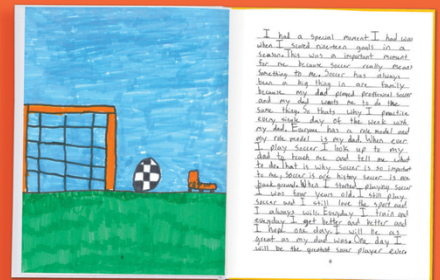 I had a special moment I had was
when I scored nine-teen goals in a
season. This was a important moment
for me because soccer really means
something to me. Soccer has always
been a big thing in are family
because my dad played proffesional soccer
and my dad wants me to do the
same thing. So thats why I practice
every single day of the week with
my dad. Everyone has a role model and
my role model is my dad. When ever
I play soccer I look up to my
dad to teach me and tell me what
to do. That is why soccer is so important
to me. Soccer is are history soccer is are
back ground. When I started playing soccer
I was four years old. I still play
soccer and I still love the sport and
I always will. Everyday I train and
everyday I get better and better and
I hope one day I will be as
great as my dad was. One day I
will be the greatest soccer player ever